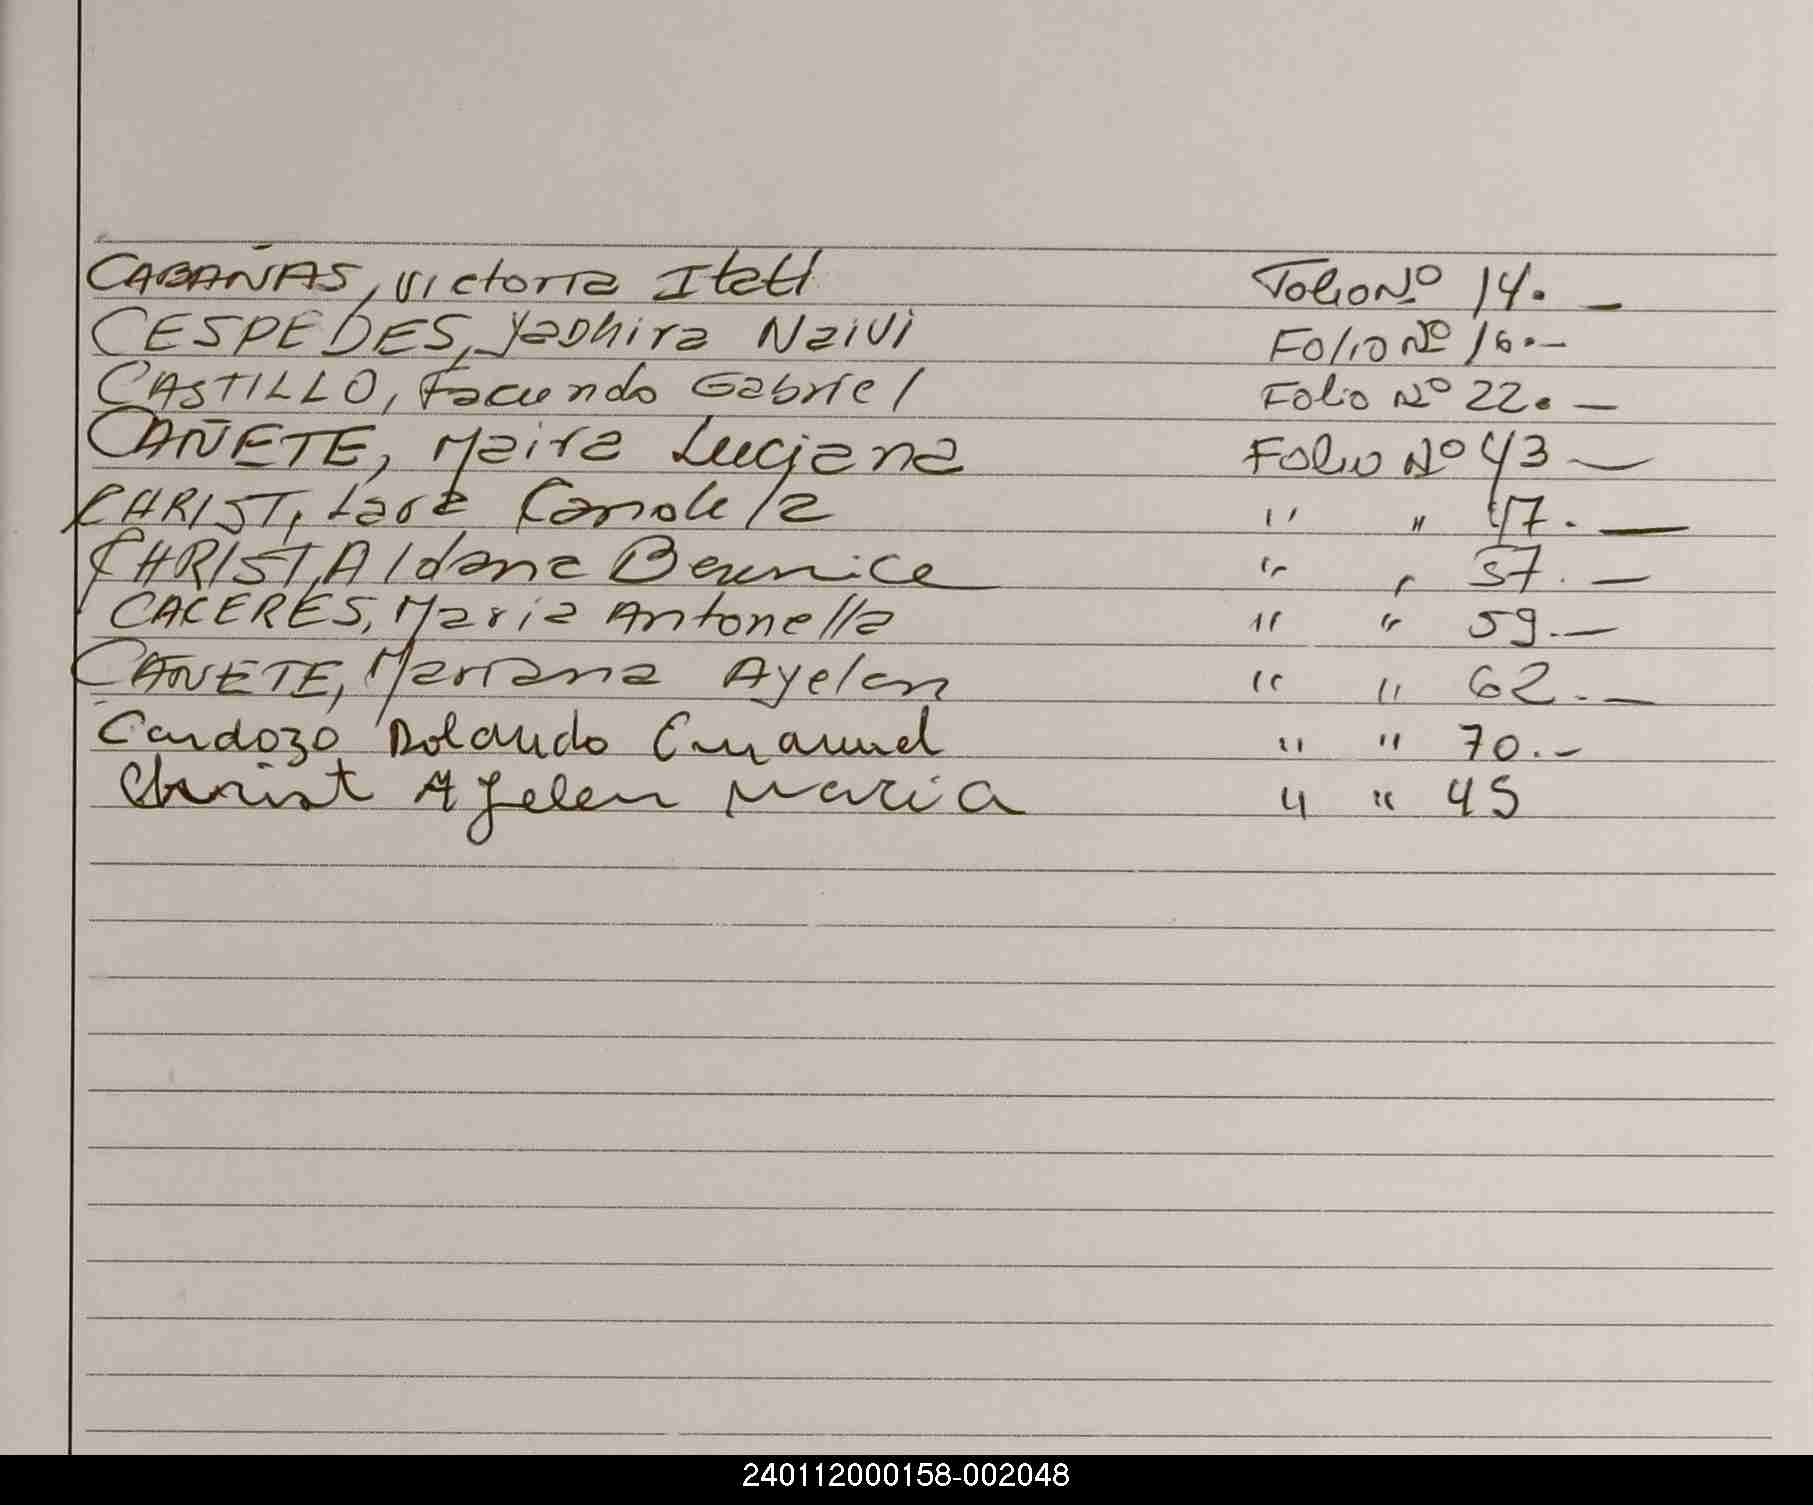 CABAÑAS, Victoria Itatí Folio Nº 14. —
CESPEDES, Yadhira Naivi Folio Nº 16. —
CASTILLO, Facundo Gabriel Folio Nº 22. —
CAÑETE, Maira Luciana Folio Nº 43 —
CHRIST, Lara Candela " " 47. —
CHRIST, Aldana Berenice " " 57. —
CACERES, Maria Antonella " " 59. —
CAÑETE, Mariana Ayelen " " 62. —
Cardozo Rolando Emanuel " " 70. —
Christ Ayelen Maria " " 45
240112000158-002048